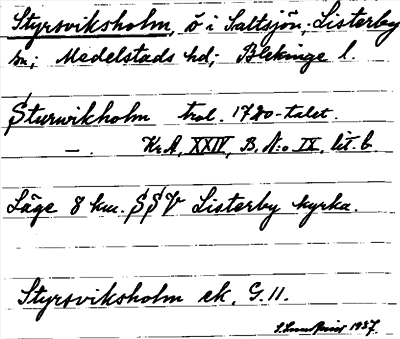 Styrsviksholm, ö i Saltsjön, Listerby
sn; Medelstads hd; Blekinge l.
Sturwikholm trol. 1720-talet.
—. Kr.A, XXIV, B. N:o IX, lit. b.
Läge 8 km. SSV Listerby kyrka.
Styrsviksholm ek. G. 11.
1937.